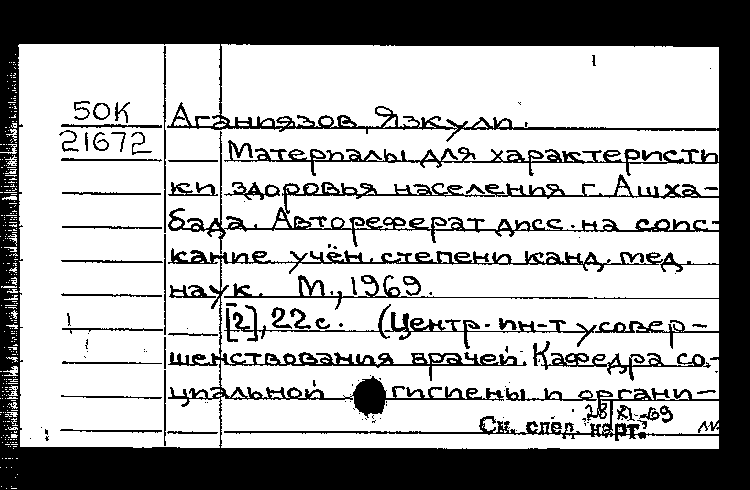 50К
21672
Аганиязов, Язкули.
Материалы для характеристи
ки здоровья населения г. Ашха-
бада. Автореферат дисс. на соис-
кание учён. степени канд. мед.
наук. М., 1969.
[2], 22 с. (Центр. ин-т усовер-
шенствования врачей. Кафедра со-
циальной гигиены и органи-
28/XI-69
См. след. карт.